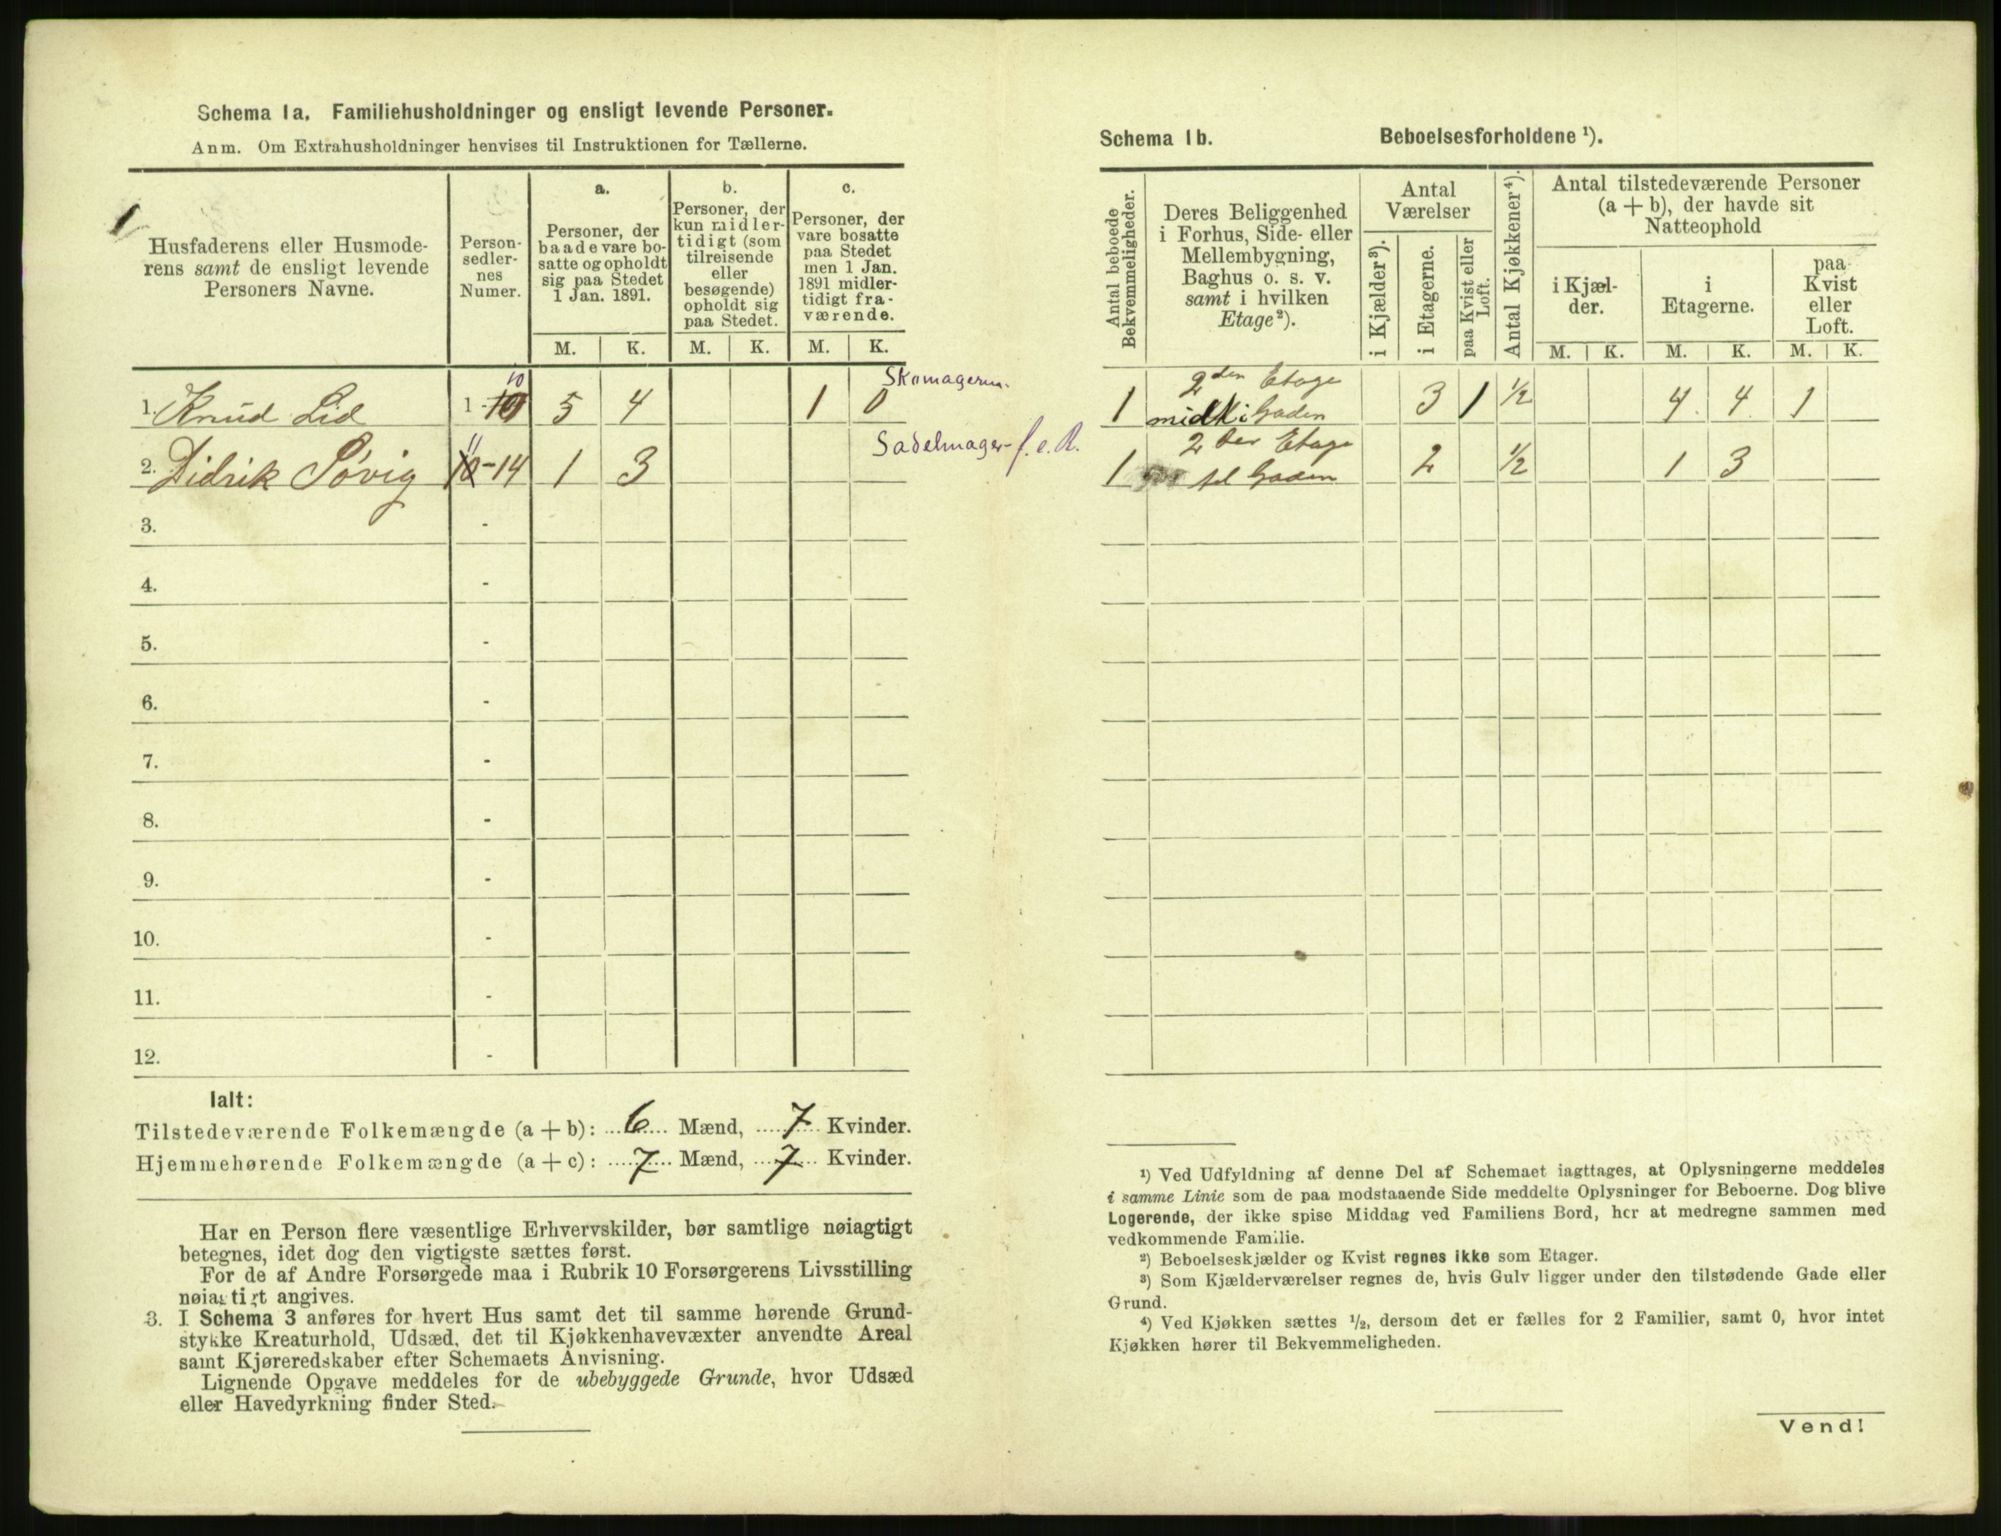 Schema 1a. Familiehusholdninger og ensligt levende Personer.
Anm. Om Extrahusholdninger henvises til Instruktionen for Tællerne.
1
Husfaderens eller Husmode-
rens samt de ensligt levende
Personers Navne.
Person-
sedler-
nes
Numer.
a.
Personer, der
baade vare bo-
satte og opholdt
sig paa Stedet
1 Jan. 1891.
b.
Personer, der
kun midler-
tidigt (som
tilreisende
eller
besøgende)
opholdt sig
paa Stedet.
c.
Personer, der
vare bosatte
paa Stedet
men 1 Jan.
1891 midler-
tidigt fra-
værende.
M. K. M. K. M. K.
1. Knud Lid 1 - 10 5 4 1 0 Skomagerm.
2. Didrik Søvig 11 - 14 1 3 Sadelmager f. e. R.
3. -
4. -
5. -
6. -
7. -
8. -
9. -
10. -
11. -
12. -
Ialt:
Tilstedeværende Folkemængde (a + b): 6 Mænd, 7 Kvinder.
Hjemmehørende Folkemængde (a + c): 7 Mænd, 7 Kvinder.
Har en Person flere væsentlige Erhvervskilder, bør samtlige nøiagtigt
betegnes, idet dog den vigtigste sættes først.
For de af Andre Forsørgede maa i Rubrik 10 Forsørgerens Livsstilling
nøiagtigt angives.
3. I Schema 3 anføres for hvert Hus samt det til samme hørende Grund-
stykke Kreaturhold, Udsæd, det til Kjøkkenhavevæxter anvendte Areal
samt Kjøreredskaber efter Schemaets Anvisning.
Lignende Opgave meddeles for de ubebyggede Grunde, hvor Udsæd
eller Havedyrkning finder Sted.
Schema 1b. Beboelsesforholdene ¹).
Antal beboede
Bekvemmeligheder.
Deres Beliggenhed
i Forhus, Side- eller
Mellembygning,
Baghus o. s. v.
samt i hvilken
Etage²).
Antal
Værelser
i Kjælder³).
i Etagerne.
paa Kvist eller
Loft.
Antal Kjøkkener⁴).
Antal tilstedeværende Personer
(a + b), der havde sit
Natteophold
i Kjæl-
der.
i
Etagerne.
paa
Kvist
eller
Loft.
M. K. M. K. M. K.
2den Etage
1 midt i Gaden 3 1 ½ 4 4 1
2den Etage
1 til Gaden 2 ½ 1 3
¹) Ved Udfyldning af denne Del af Schemaet iagttages, at Oplysningerne meddeles
i samme Linie som de paa modstaaende Side meddelte Oplysninger for Beboerne. Dog blive
Logerende, der ikke spise Middag ved Familiens Bord, her at medregne sammen med
vedkommende Familie.
²) Beboelseskjælder og Kvist regnes ikke som Etager.
³) Som Kjælderværelser regnes de, hvis Gulv ligger under den tilstødende Gade eller
Grund.
⁴) Ved Kjøkken sættes ½, dersom det er fælles for 2 Familier, samt 0, hvor intet
Kjøkken hører til Bekvemmeligheden.
Vend!